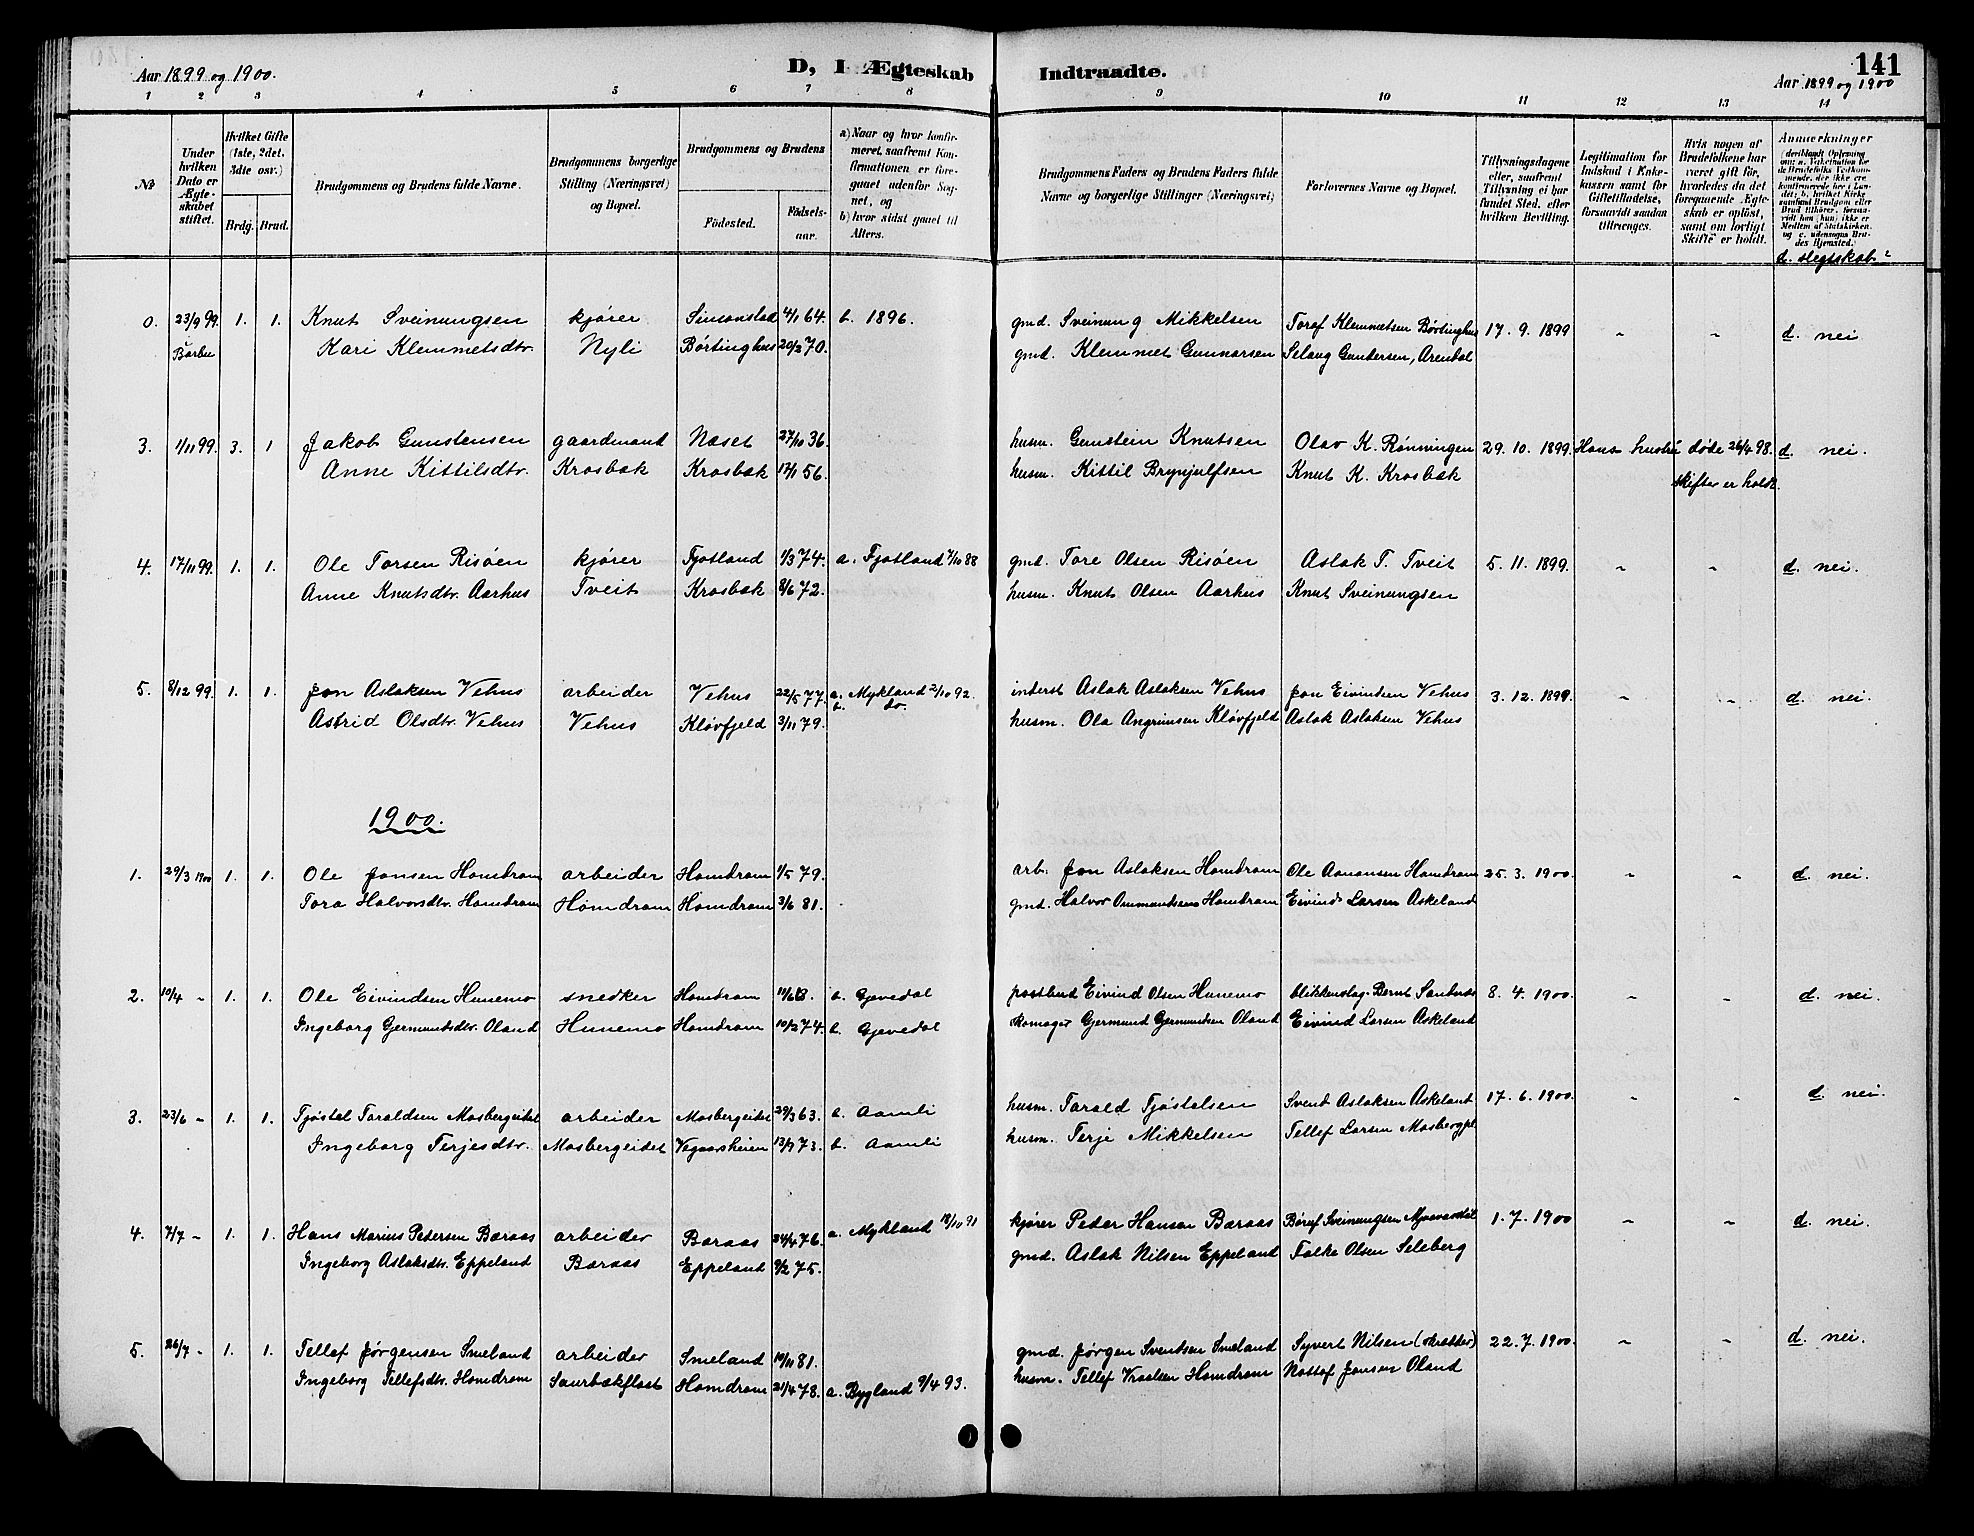 Aar 1899 og 1900.
D, I Ægteskab Indtraadte.
141
Aar 1899 og 1900
1 2 3 4 5 6 7 8 9 10 11 12 13 14
No
Under hvilken Dato er Ægteskabet stiftet.
Hvilket Gifte (1ste, 2det, 3dte osv.)
Brdg. Brud.
Brudgommens og Brudens fulde Navne.
Brudgommens borgerlige Stilling (Næringsvei) og Bopæl.
Brudgommens og Brudens
Födested. Födselsaar.
a) Naar og hvor konfirmeret, saafremt Konfirmationen er foregaaet udenfor Sognet, og
b) hvor sidst gaaet til Alters.
Brudgommens Faders og Brudens Faders fulde Navne og borgerlige Stillinger (Næringsvei)
Forlovernes Navne og Bopæl.
Tillysningsdagene eller, saafremt Tillysning ei har fundet Sted, efter hvilken Bevilling.
Legitimation for Indskud i Enkekassen samt for Giftetilladelse, forsaavidt saadan tiltrænges.
Hvis nogen af Brudefolkene har været gift för, hvorledes da det foregaaende Ægteskab er oplöst, samt om lovligt Skifte er holdt.
Anmærkninger
d. slegtskab?
0. 23/9 99. 1. 1. Knut Sveinungsen kjører Simonstad 4/1 64. b. 1896. gmd. Sveinung Mikkelsen Toraf Klemmetsen Børtinghus 17. 9. 1899 " " d. nei
Barbu Kari Klemmetsdtr. Nyli Børtinghus 20/2 70. gmd. Klemmet Gunnarsen Selaug Gundersen, Arendal
3. 1/11 99. 3. 1 Jakob Gunstensen gaardmand Næset 27/10 36. husm. Gunstein Knutsen Olav K. Rønningen 29. 10. 1899. Hans hustru døde 26/4 98. d. nei.
Anne Kittilsdtr. Krosbæk Krosbæk 17/1 56. husm. Kittil Brynjulfsen Knut K. Krosbæk skifter er holdt.
4. 17/11 99. 1. 1. Ole Torsen Risøen kjører Fjotland 1/3 74. a. Fjotland 7/10 88 gmd. Tore Olsen Risøen Aslak T. Tveit 5. 11. 1899. " " d. nei.
Anne Knutsdtr. Aarhus Tveit Krosbæk 8/6 72. husm. Knut Olsen Aarhus Knut Sveinungsen
5. 8/12 99. 1. 1. Jon Aslaksen Vehus arbeider Vehus 22/5 77. a. Mykland 2/10 92. inderst Aslak Aslaksen Vehus Jon Eivindsen Vehus 3. 12. 1899. " " d. nei.
Astrid Olsdtr. Vehus Vehus Kløvfjeld 3/11 79. b. do. husm. Ola Angrimsen Kløvfjeld Aslak Aslaksen Vehus
1900.
1. 29/3 1900 1. 1. Ole Jonsen Homdrom arbeider Homdrom 1/5 79. arb. Jon Aslaksen Homdrom Ole Aanonsen Homdrom 25. 3. 1900. " " d. nei.
Tora Halvorsdtr. Homdrom Homdrom Homdrom 3/6 81. gmd. Halvor Ommundsen Homdrom Eivind Larsen Askeland
2. 10/4 " 1. 1. Ole Eivindsen Hunemo snedker Homdrom b. Gjevedal postbud Eivind Olsen Hunemo blikkenslag. Bernt 8. 4. 1900. " " d. nei.
Ingeborg Gjermundsdtr. Oland Hunemo Homdrom 10/2 74. b. Gjevedal skomager Gjermund Gjermundsen Oland Eivind Larsen Askeland
3. 23/6 " 1. 1. Tjøstel Taraldsen Mosbergeidet arbeider Mosbergeidet 29/3 63. b. Aamli husm. Tarald Tjøstelsen Svent Aslaksen Askeland 17. 6. 1900. " " d. nei.
Ingeborg Terjesdtr. Mosbergeidet Vegaarsheien 13/9 73. b. Aamli husm. Terje Mikkelsen Tellef Larsen Mosbergpl
4. 7/7 " 1. 1. Hans Marius Pedersen Baraas arbeider Baraas 24/4 76. a. Mykland 18/10 91 kjører Peder Hansen Baraas Børuf Sveinungsen 1. 7. 1900 " " d. nei.
Ingeborg Aslaksdtr. Eppeland Baraas Eppeland 9/2 75. gmd. Aslak Nilsen Eppeland Folke Olsen Seleberg
5. 26/7 " 1. 1. Tellef Jørgensen Smeland arbeider Smeland 10/11 81. gmd. Jørgen Sventsen Smeland Syvert Nilsen (skrædder) 22. 7. 1900. " " d. nei.
Ingeborg Tellefsdtr. Homdrom Saurbækflaat Homdrom 21/4 78. a. Bygland 9/4 93. husm. Tellef Vraalsen Homdrom Nottof Jensen Oland